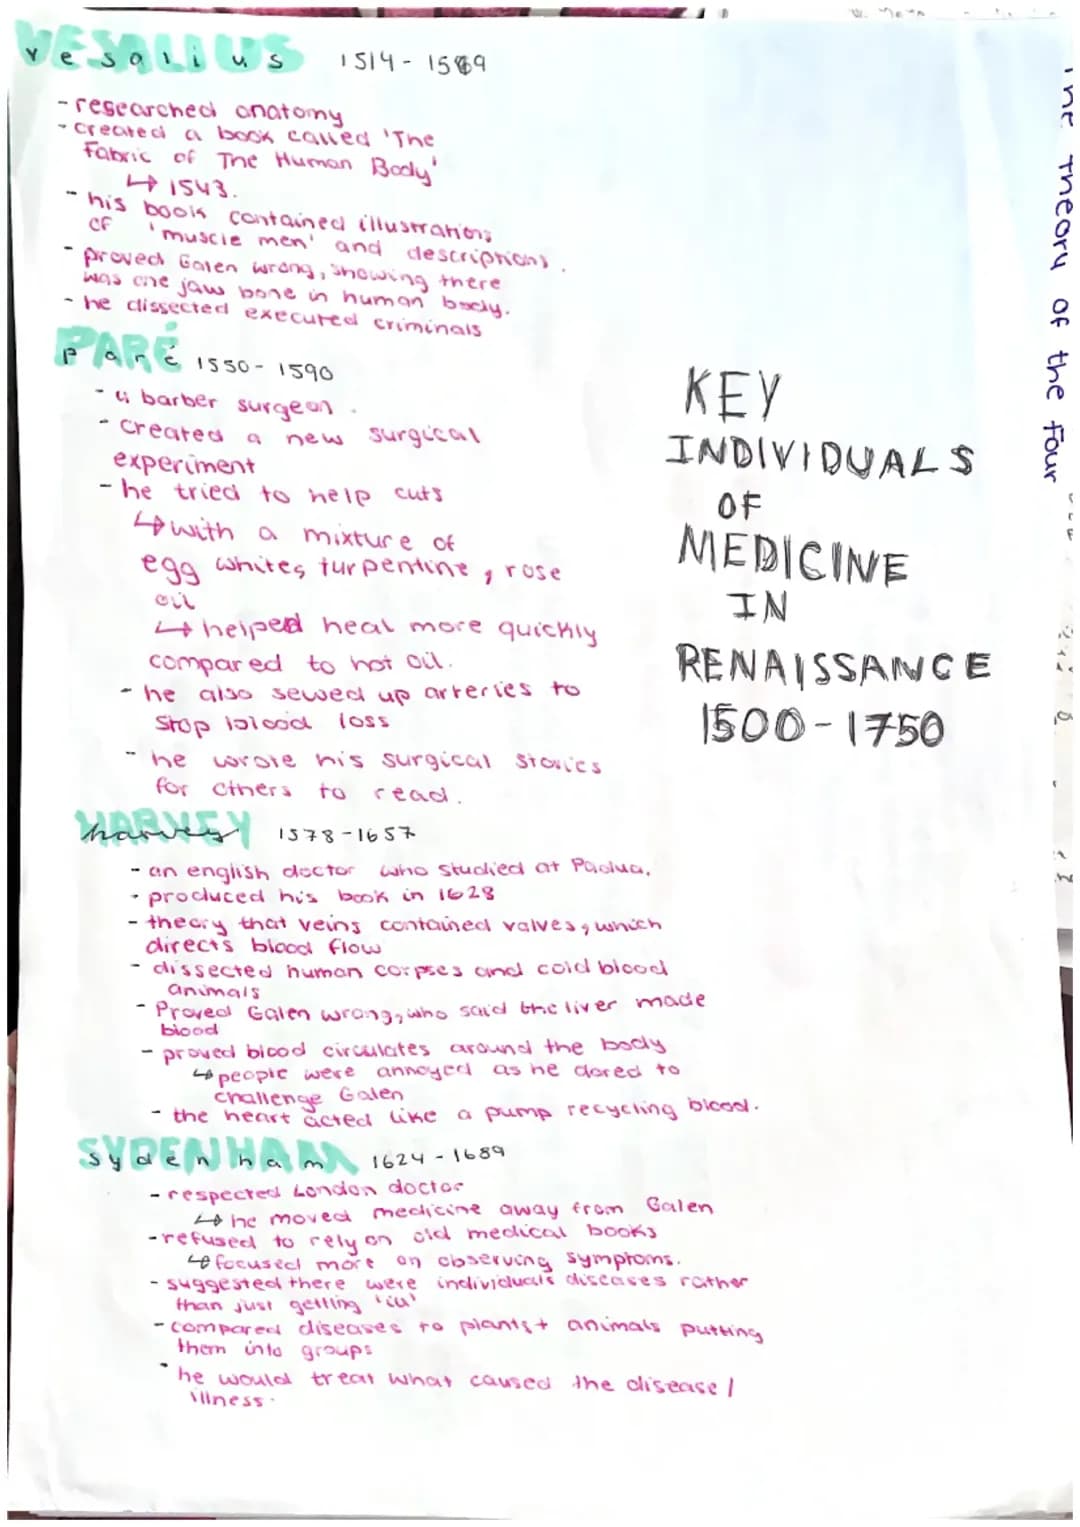 Vesalius 1514 - 1569
- researched anatomy
- created a book called 'The
Fabric of The Human Body'
↳ 1543.
- his book contained illustrations
of 'muscle men' and descriptions.
- proved Galen wrong, showing there
was one jaw bone in human body.
- he dissected executed criminals
Paré 1550 - 1590
- a barber surgeon.
- created a new surgical
experiment
- he tried to help cuts
↳ with a mixture of
egg whites, turpentine, rose
oil
↳ helped heal more quickly
compared to hot oil.
- he also sewed up arteries to
stop blood loss
- he wrote his surgical stories
for others to read.
harvey 1578 - 1657
- an english doctor who studied at Padua.
- produced his book in 1628
- theory that veins contained valves, which
directs blood flow
- dissected human corpses and cold blood
animals
- Proved Galen wrong, who said the liver made
blood
- proved blood circulates around the body
↳ people were annoyed as he dared to
challenge Galen
- the heart acted like a pump recycling blood.
Sydenham 1624 - 1689
- respected London doctor
↳ he moved medicine away from Galen
- refused to rely on old medical books
↳ focused more on observing symptoms.
- suggested there were individuals diseases rather
than just getting 'ill'
- compared diseases to plants + animals putting
them into groups
- he would treat what caused the disease /
illness.
KEY
INDIVIDUALS
OF
MEDICINE
IN
RENAISSANCE
1500 - 1750
The theory of the four